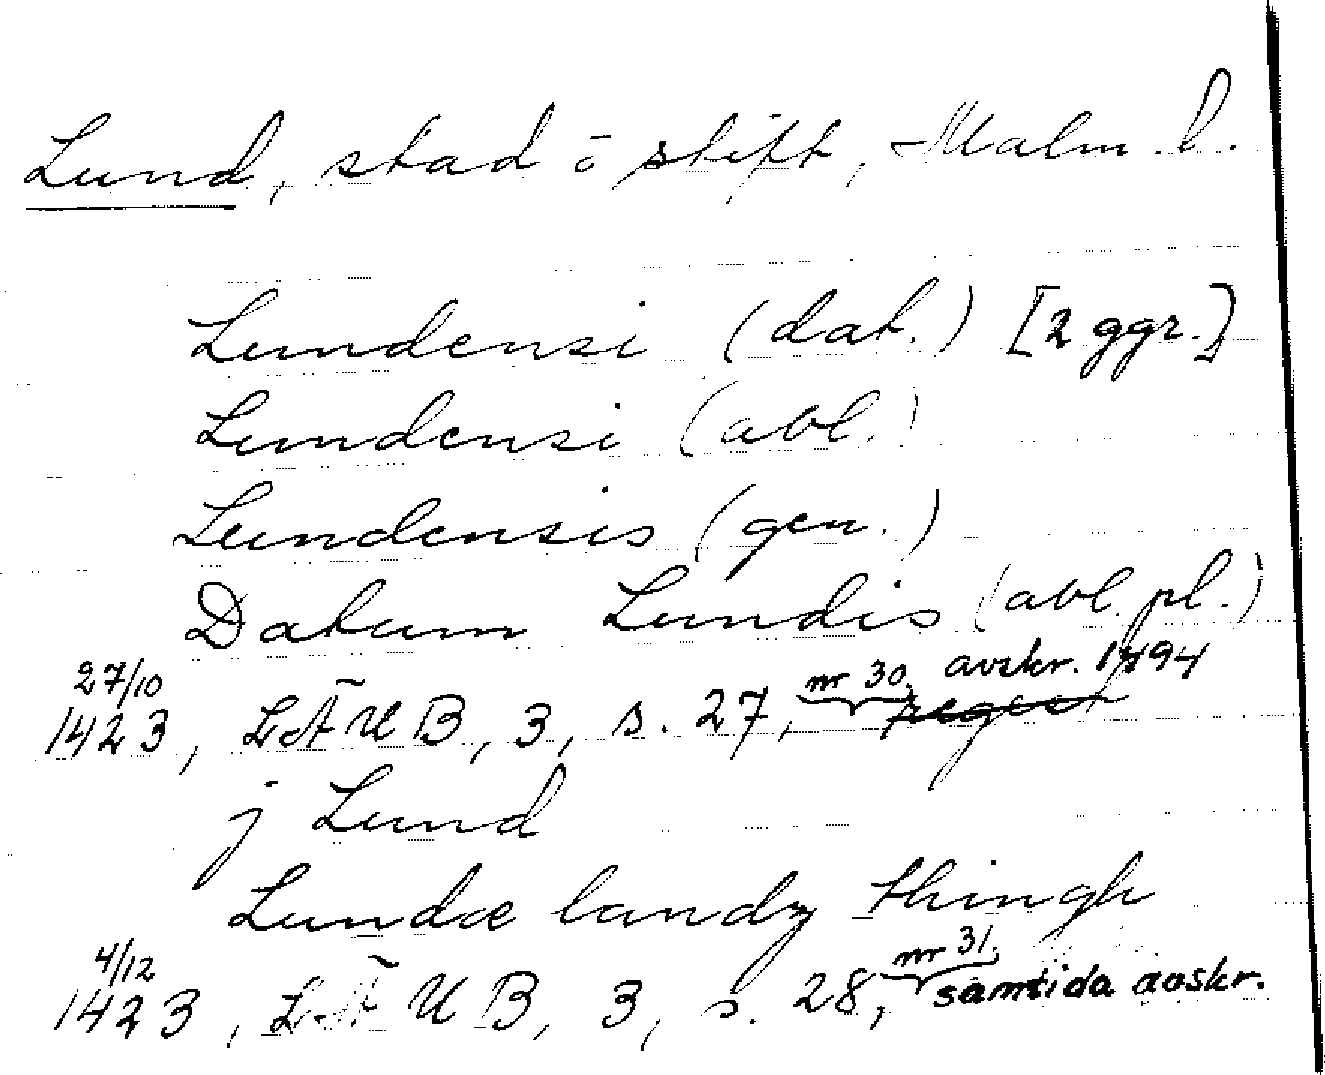 Lund, stad o stift, Malm. l.
Lundensi (dat.) [2 ggr.]
Lundensi (abl.)
Lundensis (gen.)
Datum Lundis (abl. pl.)
27/10 nr 30. avskr. 1494
1423, LÄUB, 3, s. 27, regest
j Lund
Lundæ landz thingh
4/12 nr 31.
1423, LÄUB, 3, s. 28, samtida avskr.